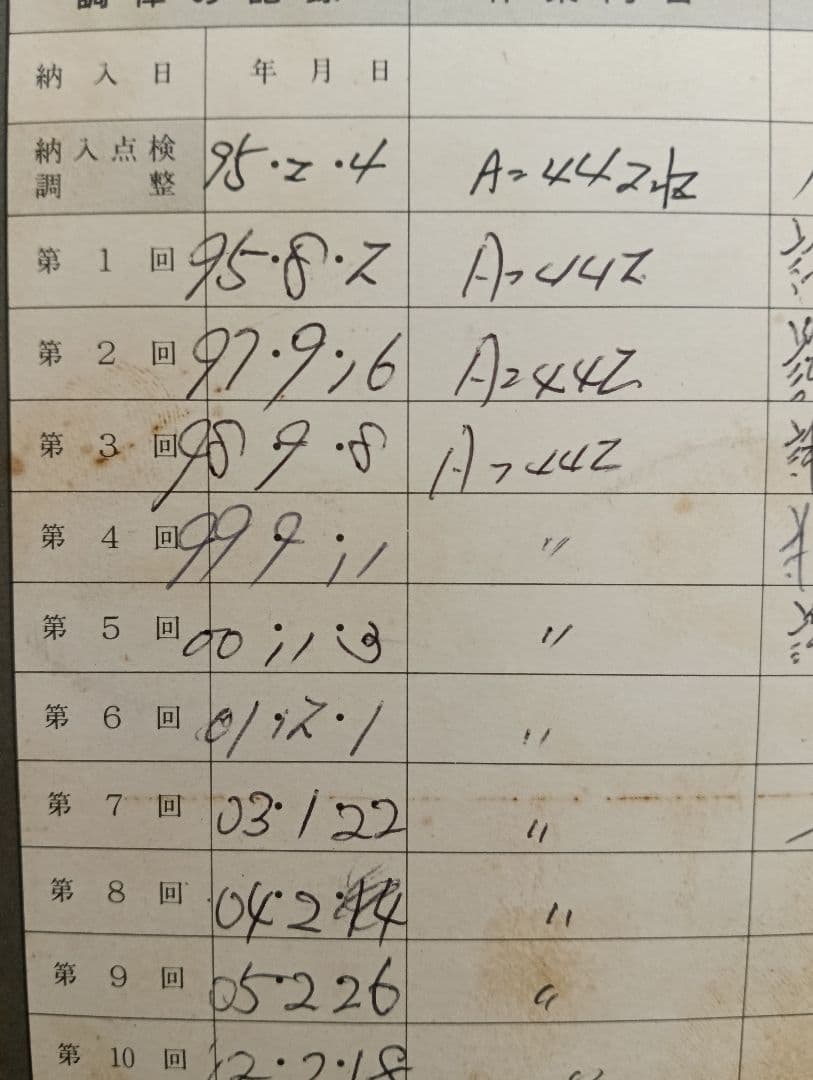 調律の記録
納入日 年 月 日
納入点検調整 95・2・4 A=442Hz
第1回 95・8・2 A=442
第2回 97・9・16 A=442
第3回 98 9・8 A=442
第4回 99 9・11 〃
第5回 00・11・3 〃
第6回 01・12・1 〃
第7回 03・1・22 〃
第8回 04・2・14 〃
第9回 05・2 26 〃
第10回 12・2・18 〃